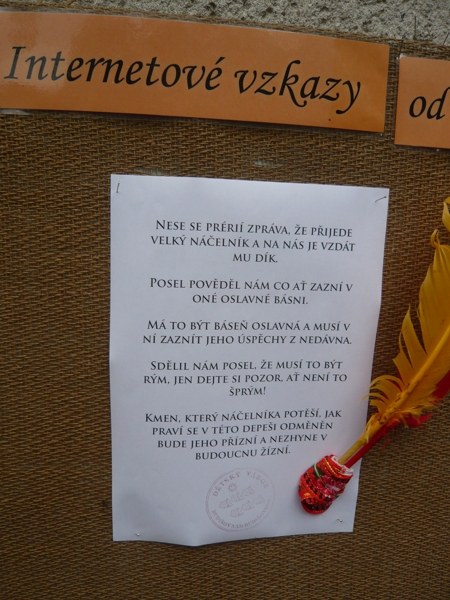 Internetové vzkazy
od
Nese se prérií zpráva, že přijede
velký náčelník a na nás je vzdát
mu dík.
Posel pověděl nám co ať zazní v
oné oslavné básni.
Má to být báseň oslavná a musí v
ní zaznít jeho úspěchy z nedávna.
Sdělil nám posel, že musí to být
rým, jen dejte si pozor, ať není to
šprým!
Kmen, který náčelníka potěší, jak
praví se v této depeši odměněn
bude jeho přízní a nezhyne v
budoucnu žízní.
DĚTSKÝ TÁBOR